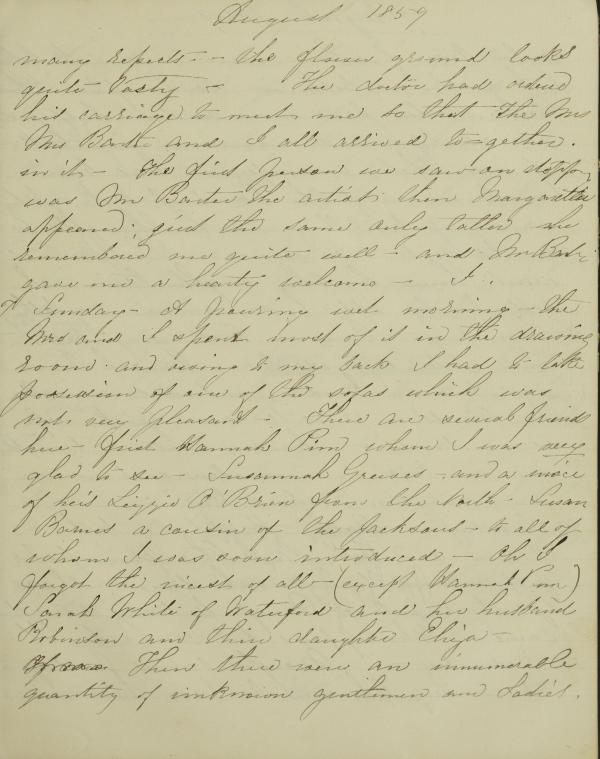 August 1859
many respects - the flower ground looks
quite tasty - The doctor had ordered
his carriage to meet me so that the Mrs
Mrs Barter and I all arrived to=gether.
in it - the first person we saw on stopp-
was Mr Barter the artist then Margarette
appeared, just the same only taller she
remembered me quite well - and Mr Bart-
gave me a hearty welcome -
7 Sunday - A pouring wet morning - the
Mrs and I spent most of it in the drawing
room and owing to my back I had to take
possession of one of the sofas which was
not very pleasant - There are several friends
here - first Hannah Pim whom I was very
glad to see - Susannah Greeves - and a niece
of her's Lizzie O'Brien from the North - Susan
Barnes a cousin of the Jacksons - to all of
whom I was soon introduced - Oh I
forgot the nicest of all - (except Hannah Pim)
Sarah White of Waterford and her husband
Robinson and their daughter Eliza -
Then there were an innumerable
quantity of unknown gentlemen and Ladies.